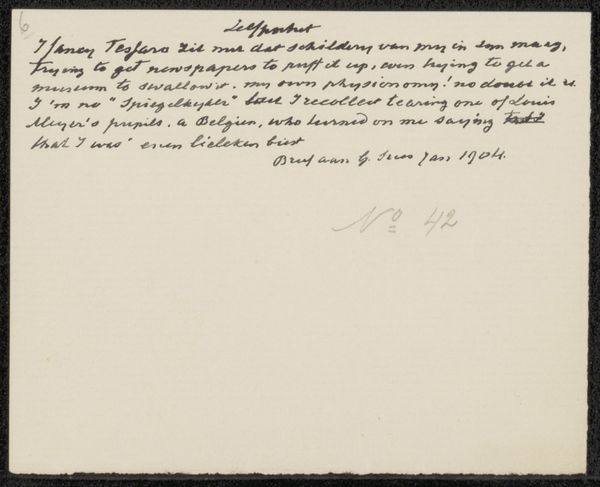 6
Zelfportret
I fancy Tesfaro zit met dat schildery van my in syn maag,
trying to get newspapers to puff it up, even trying to get a
museum to swallow it. my own physionomy! no doubt it is
I'm no "Spiegelkyker" I recollect tearing one of Louis
Meyer's pupils. a Belgian, who turned on me saying
that I was' even lieleken biest
Brief aan G. Jan 1904.
No 42